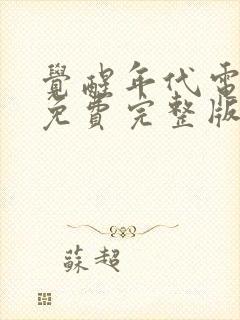 覺醒年代電
免費完整版
蘇超